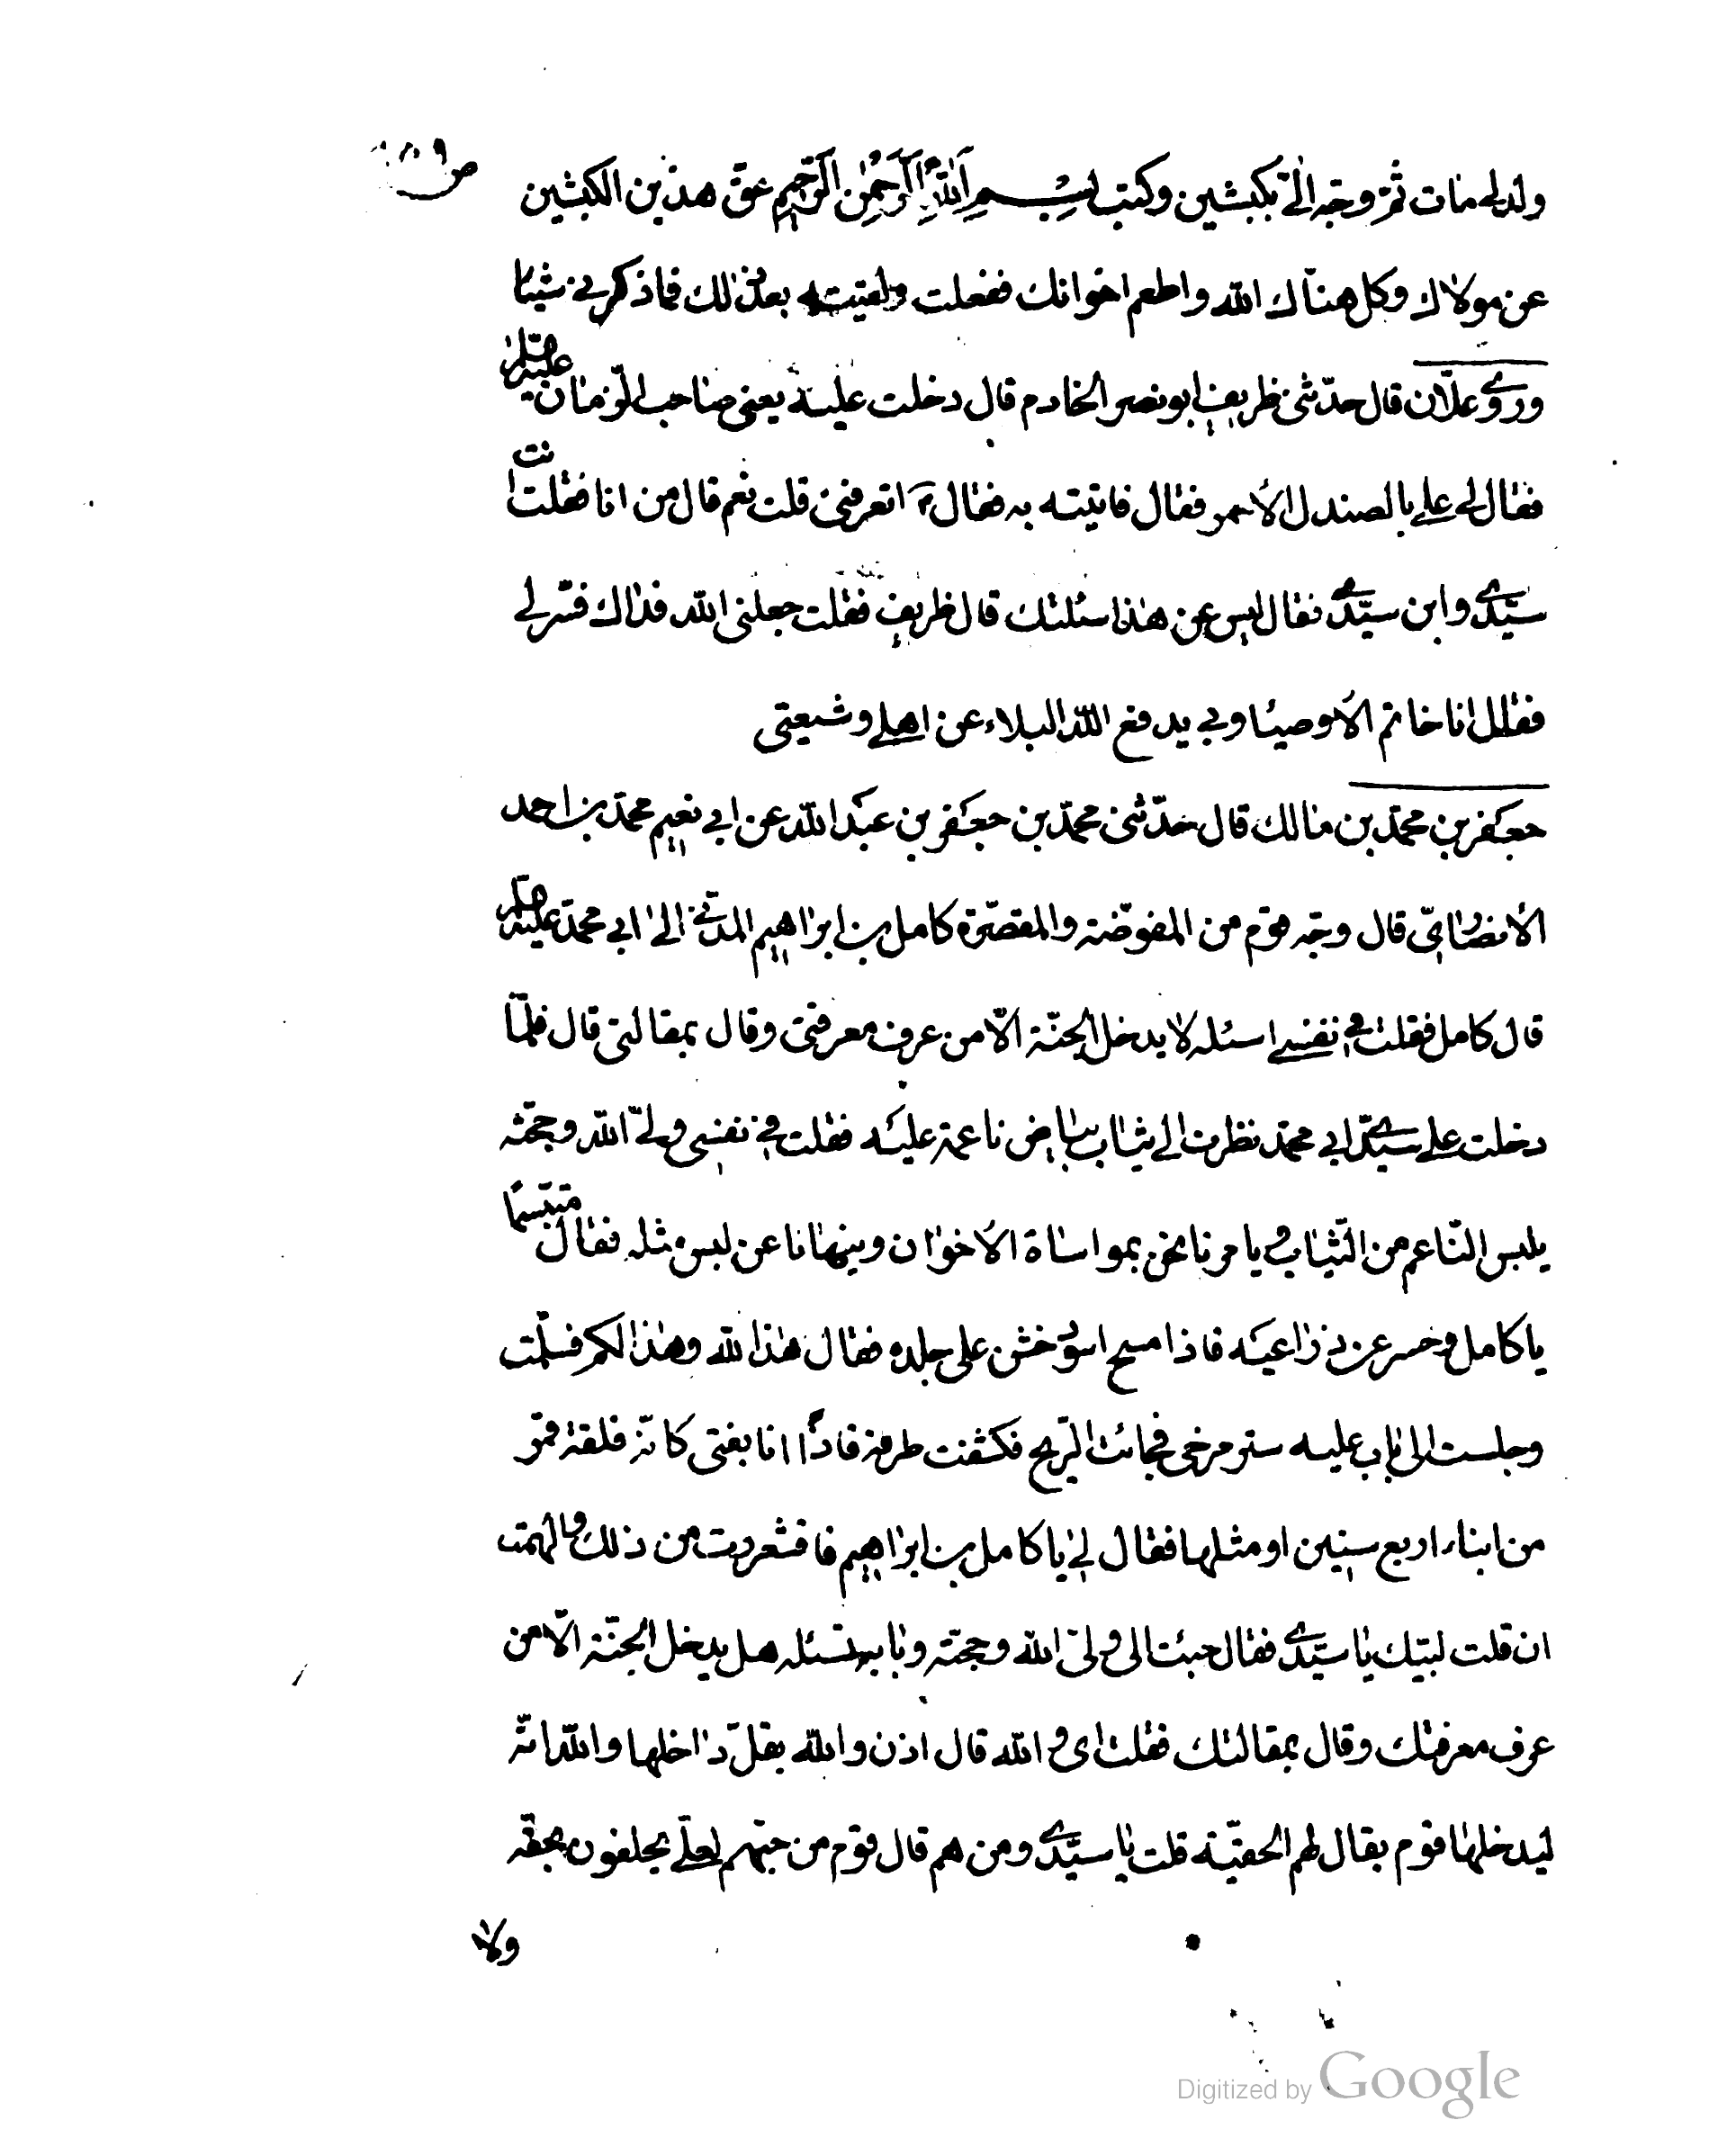 ولد لي مات ثمّ وجّه إلىّ بكبشين وكتب بِسْمِ اللهِ الرَّحْمٰنِ الرَّحِيمِ عقّ هذين الكبشين
عن مولاك وكل هنّاك الله واطعم اخوانك ففعلت ولقيته بعد ذلك فما ذكر لي شيئا
وروى علّان قال حدّثنى ظريف ابو نصر الخادم قال دخلت عليه يعنى صاحب الزّمان عليه السّلم
فقال لي علي بالصندل الأحمر فقال فاتيته به فقال ع اتعرفنى قلت نعم قال من انا فقلت انت
سيّدى وابن سيّدى فقال ليس عن هذا سئلتك قال ظريف فقلت جعلنى الله فداك فسّر لي
فقال انا خاتم الأوصيا وبي يدفع الله البلاء عن اهلي وشيعتى
جعفر بن محمّد بن مالك قال حدّثنى محمّد بن جعفر بن عبد الله عن ابي نعيم محمّد بن احمد
الأنصارىّ قال وجّه قوم من المفوّضة والمقصّرة كامل بن ابراهيم المدنى الى ابي محمّد عليه السلم
قال كامل فقلت في نفسي اسئله لا يدخل الجنّة الّا من عرف معرفتى وقال بمقالتى قال فلمّا
دخلت علي سيّدى ابي محمّد نظرت الي ثياب بياض ناعمة عليه فقلت في نفسى وليّ الله وحجّته
يلبس النّاعم من الثّياب ويامرنا نحن بمواساة الأخوان وينهانا عن لبس مثله فقال متبسّما
يا كامل وحسر عن ذراعيه فاذا مسح اسود خشن على جلده فقال هذا لله وهذا لكم فسلّمت
وجلست الى باب عليه ستر مرخى فجائت الرّيح فكشفت طرفه فاذا انا بفتى كانّه فلقة قمر
من ابناء اربع سنين او مثلها فقال لي يا كامل بن ابراهيم فاقشعررت من ذلك والهمت
ان قلت لبّيك يا سيّدى فقال جئت الى وليّ الله وحجّته وبابه تسئله هل يدخل الجنّة الّا من
عرف معرفتك وقال بمقالتك فقلت اى والله قال اذن والله يقلّ داخلها والله انّه
ليدخلها قوم يقال لهم الحقيّة قلت يا سيّدى ومن هم قال قوم من حبّهم لعلي يحلفون بحقّه
ولا
Digitized by Google